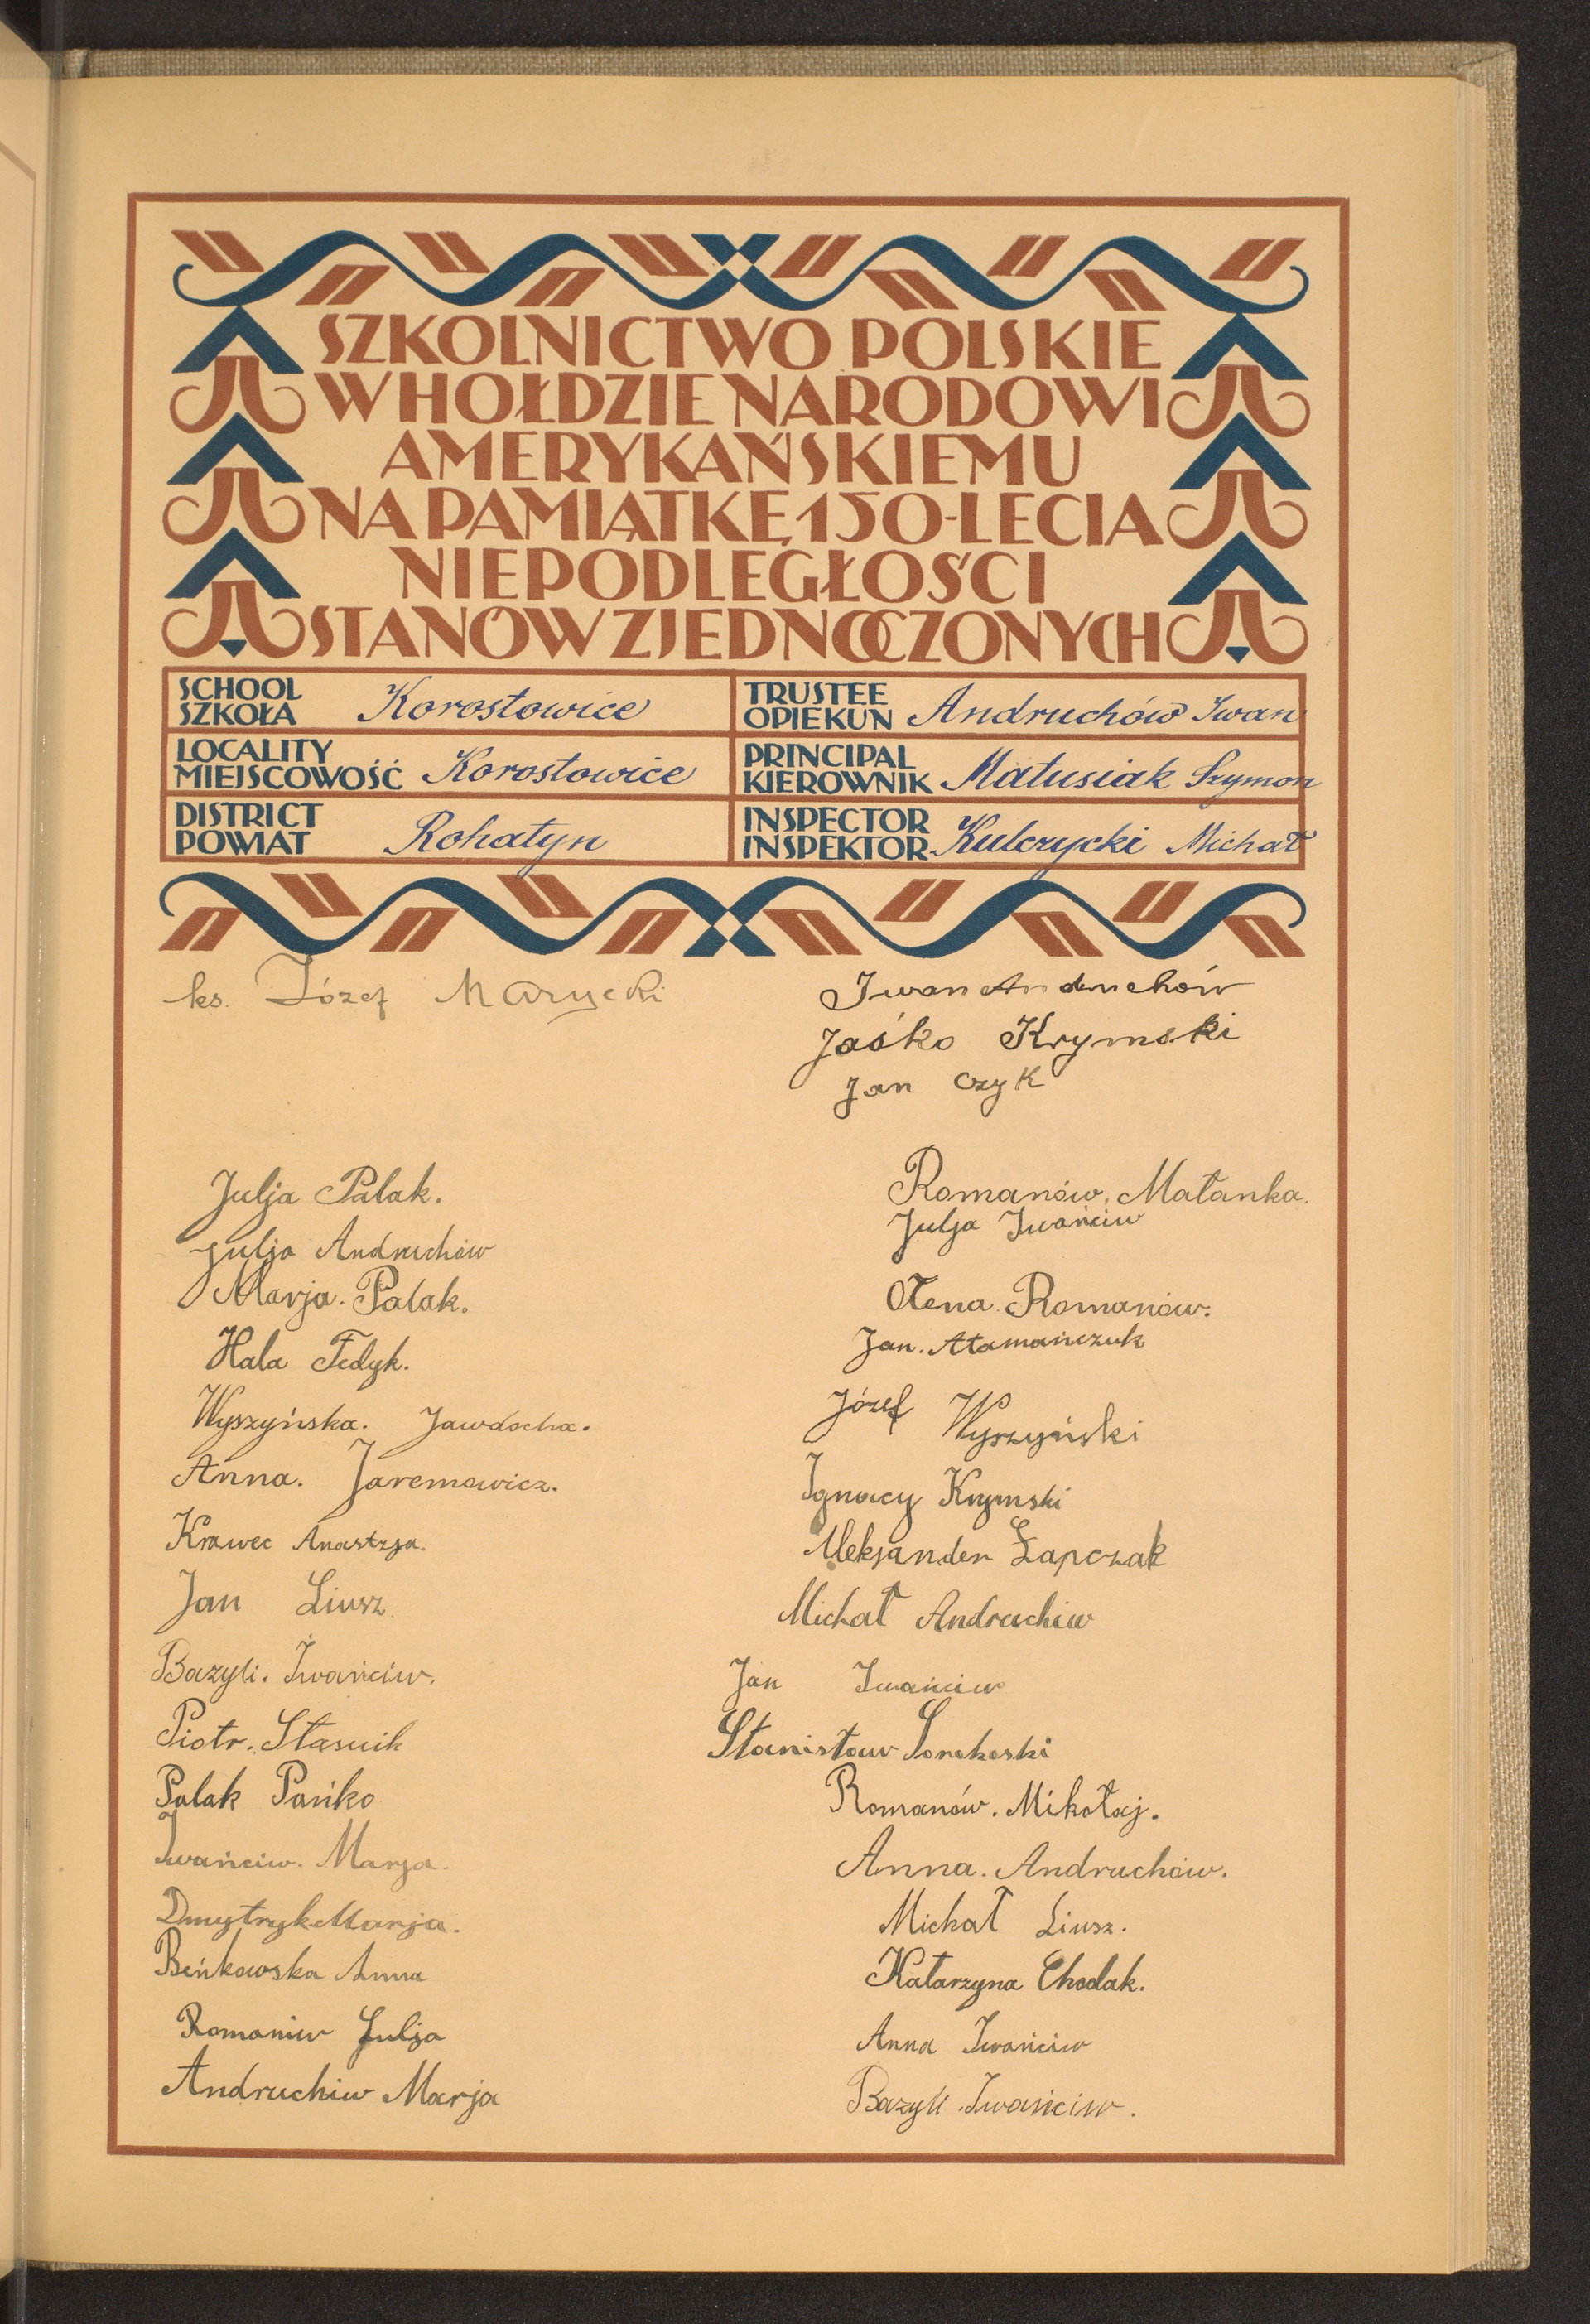 SZKOLNICTWO POLSKIE
W HOŁDZIE NARODOWI
AMERYKAŃSKIEMU
NA PAMIĄTKĘ 150-LECIA
NIEPODLEGŁOŚCI
STANÓW ZJEDNOCZONYCH
SCHOOL
SZKOŁA Korostowice
TRUSTEE
OPIEKUN Andruchów Iwan
LOCALITY
MIEJSCOWOŚĆ Korostowice
PRINCIPAL
KIEROWNIK Matusiak Szymon
DISTRICT
POWIAT Rohatyn
INSPECTOR
INSPEKTOR Kulczycki Michał
ks. Józef
Iwan Andruchów
Jaśko Krymski
Jan Czyk
Julja Palak.
Julja Andruchów
Marja. Palak.
Hala Fedyk.
Wyszyńska. Jawdocha.
Anna. Jaremowicz.
Krawec Anastzja.
Jan Liusz
Bazyli. Iwańciw.
Piotr. Stasuik
Palak Pańko
Iwańciw. Marja.
Dmytryk Marja.
Beńkowska Anna
Romaniw Julja
Andruchiw Marja
Romanów. Małanka.
Julja Iwańciw
Ołena. Romanów.
Jan. Atamańczuk
Józef Wyszyński
Ignacy Krymski
Aleksander Łapczak
Michał Andruchiw
Jan Iwańciw
Stanisław
Romanów. Mikołaj.
Anna. Andruchów.
Michał Liusz.
Katarzyna Chodak.
Anna Iwańciw
Bazyli. Iwańciw.